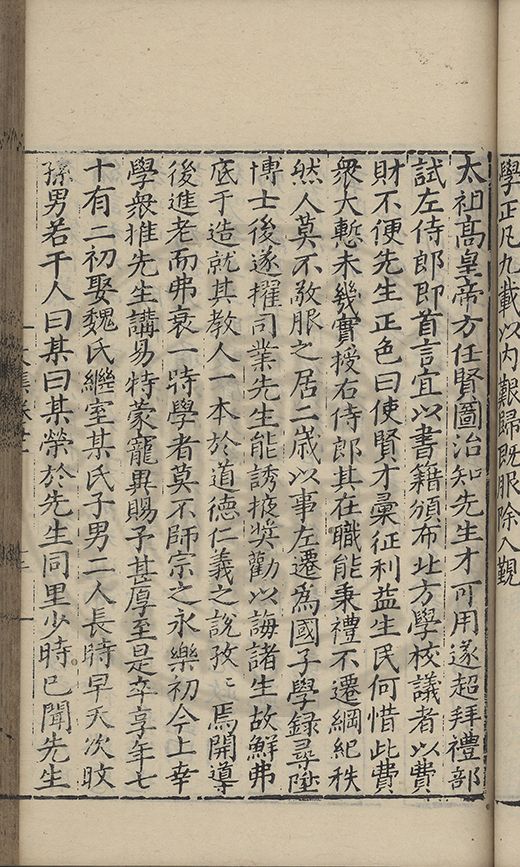 學正凡九載以内艱歸既服除入覲
太祖高皇帝方任賢圖治知先生才可用遂超拜禮部
試左侍郎即首言宜以書籍頒布北方學校議者以費
財不便先生正色曰使賢才彙征利益生民何惜此費
衆大慙未幾實授右侍郎其在職能秉禮不遷綱紀秩
然人莫不敬服之居二歲以事左遷為國子學録尋陞
博士後遂擢司業先生能誘掖奨勸以誨諸生故鮮弗
底于造就其教人一本於道德仁義之說孜〻焉開導
後進老而弗衰一時學者莫不師宗之永樂初今上幸
學衆推先生講易特蒙寵異賜予甚厚至是卒享年七
十有二初娶魏氏繼室某氏子男二人長時早夭次旼
孫男若干人曰某曰某榮於先生同里少時已聞先生